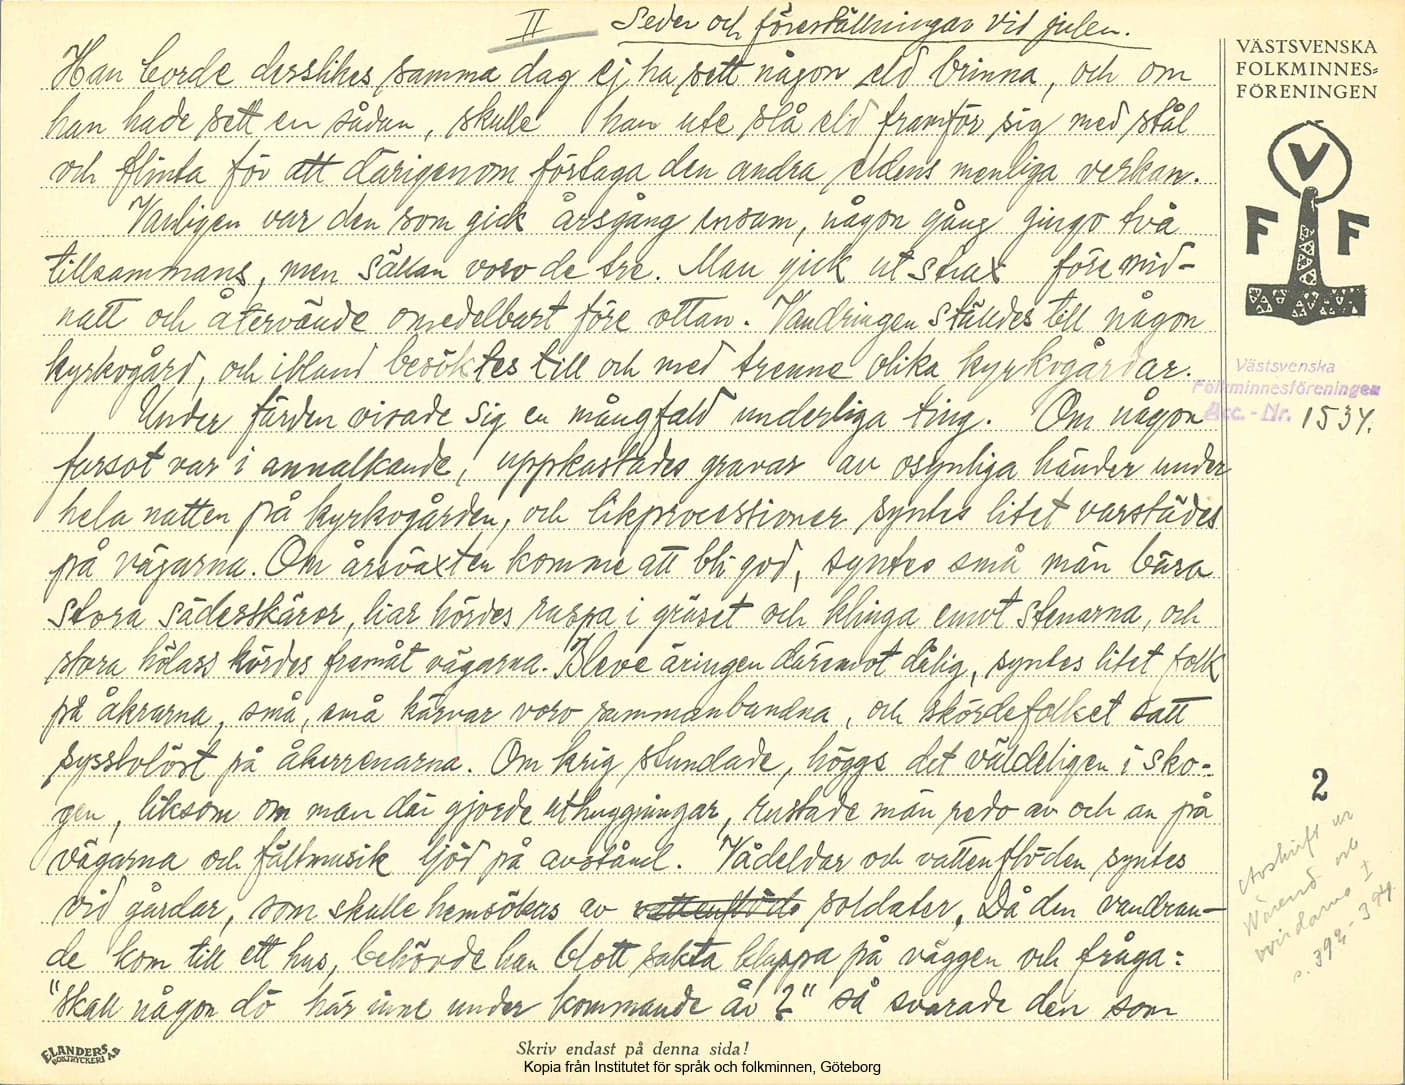 II Seder och föreställningar vid julen.
Han borde derslikes samma dag ej ha sett någon eld brinna, och om
han hade sett en sådan, skulle han ute slå eld framför sig med stål
och flinta för att därigenom förtaga den andra eldens menliga verkan.
Vanligen var den som gick årsgång ensam, någon gång gingo två
tillsammans, men sällan voro de tre. Man gick ut strax före mid-
natt och återvände omedelbart före ottan. Vandringen ställdes till någon
kyrkogård, och ibland besöktes till och med trenne olika kyrkogårdar.
Under färden visade sig en mångfald underliga ting. Om någon
farsot var i annalkande, uppkastades gravar av osynliga händer under
hela natten på kyrkogården, och likprocessioner syntes litet varstädes
på vägarna. Om årsväxten komme att bli god, syntes små män bära
stora sädesskäror, liar hördes raspa i gräset och klinga emot stenarna, och
stora hölass kördes framåt vägarna. Bleve äringen däremot dålig, syntes litet folk
på åkrarna, små, små kärvar voro sammanbundna, och skördefolket satt
sysslolöst på åkerrenarna. Om krig stundade, höggs det väldeligen i sko-
gen, liksom om man där gjorde uthuggningar, rustade män redo av och an på
vägarna och fältmusik ljöd på avstånd. Vådeldar och vattenflöden syntes
vid gårdar, som skulle hemsökas av vattenflöde soldater. Då den vandran-
de kom till ett hus, behövde han blott sakta klappa på väggen och fråga:
"Skall någon dö här inne under kommande år?" så svarade den som
VÄSTSVENSKA
FOLKMINNES=
FÖRENINGEN
V
F F
Västsvenska
Folkminnesföreningen
Acc. - Nr. 1534.
2
Avskrift ur
Wärend och
wirdarna I
s. 392-394
ELANDERS
BOKTRYCKERI AB
Skriv endast på denna sida!
Kopia från Institutet för språk och folkminnen, Göteborg